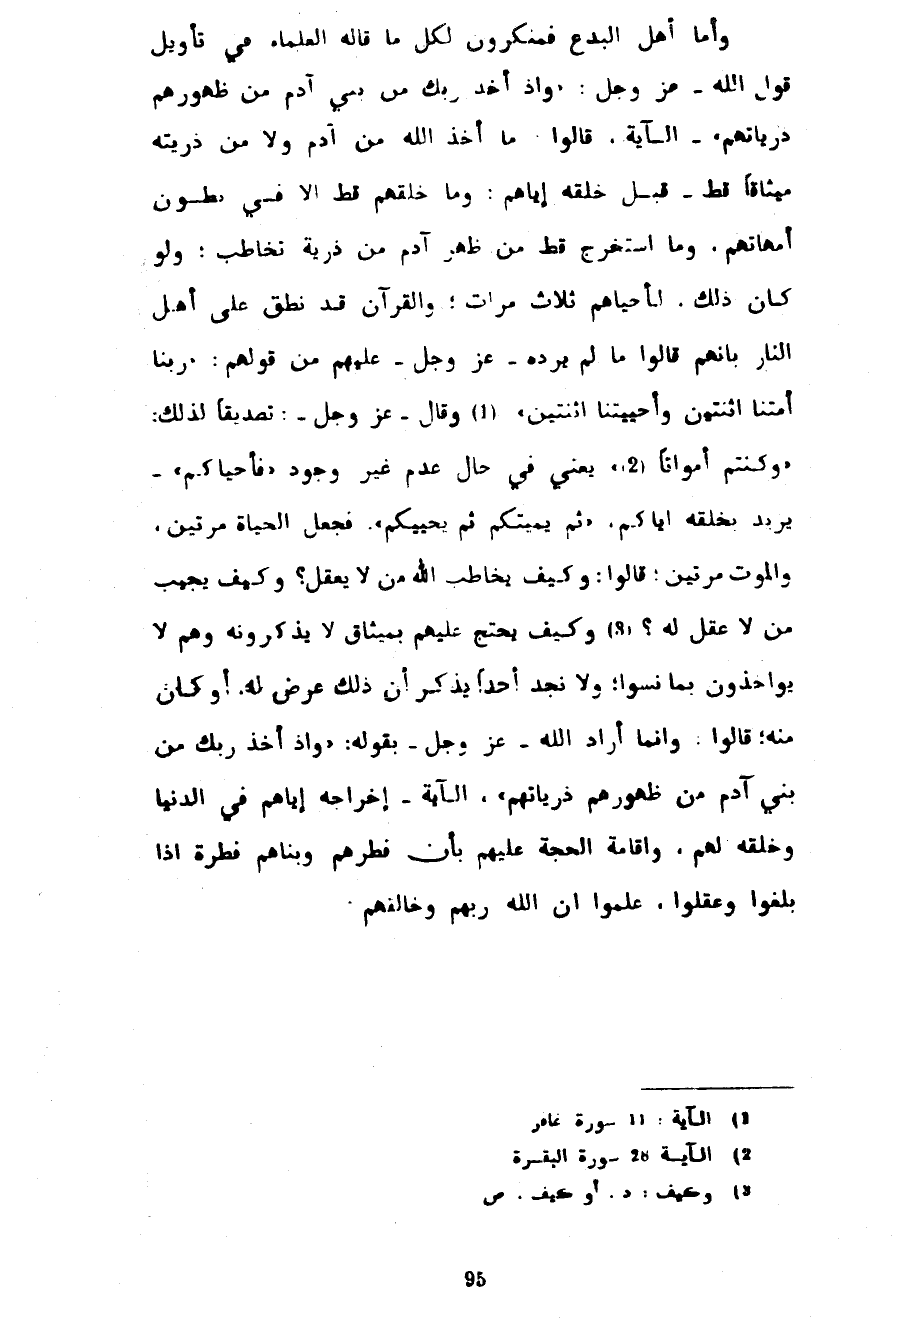 وأما أهل البدع فمنكرون لكل ما قاله العلماء في تأويل
قول الله ـ عز وجل : «واذ أخذ ربك من بني آدم من ظهورهم
ذرياتهم» ـ الـآية . قالوا : ما أخذ الله من آدم ولا من ذريته
ميثاقاً قط ـ قبـل خلقه إياهم : وما خلقهم قط الا فـي بطـون
أمهاتهم . وما استخرج قط من ظهر آدم من ذرية تخاطب : ولو
كـان ذلك . لأحياهم ثلاث مرات ؛ والقرآن قـد نطق على أهـل
النار بانهم قالوا ما لم يرده ـ عز وجل ـ عليهم من قولهم : «ربنا
أمتنا اثنتين وأحييتنا اثنتين» (1) وقال ـ عز وجل ـ : تصديقاً لذلك:
«وكنتم أمواتاً (2)» يعني في حال عدم غير وجود «فأحياكم» ـ
يريد بخلقه اياكم. «ثم يميتكم ثم يحييكم». فجعل الحياة مرتين،
والموت مرتين : قالوا : وكـيف يخاطب الله من لا يعقل؟ وكـيف يجيب
من لا عقل له ؟ (3) وكـيف يحتج عليهم بميثاق لا يذكرونه وهم لا
يواخذون بما نسوا؛ ولا نجد أحداً يذكـر أن ذلك عرض له. أو كـان
منه؛ قالوا : وانما أراد الله ـ عز وجل ـ بقوله: «واذ أخذ ربك من
بني آدم من ظهورهم ذرياتهم» . الـآية ـ إخراجه إياهم في الدنيا
وخلقه لهم . واقامة الحجة عليهم بأن فطرهم وبناهم فطرة اذا
بلغوا وعقلوا . علموا ان الله ربهم وخالقهم .
1) الـآية : 11 سورة غافر
2) الـآيـة 28 سورة البقـرة
3) وكيف : د . أو كيف . ص
95